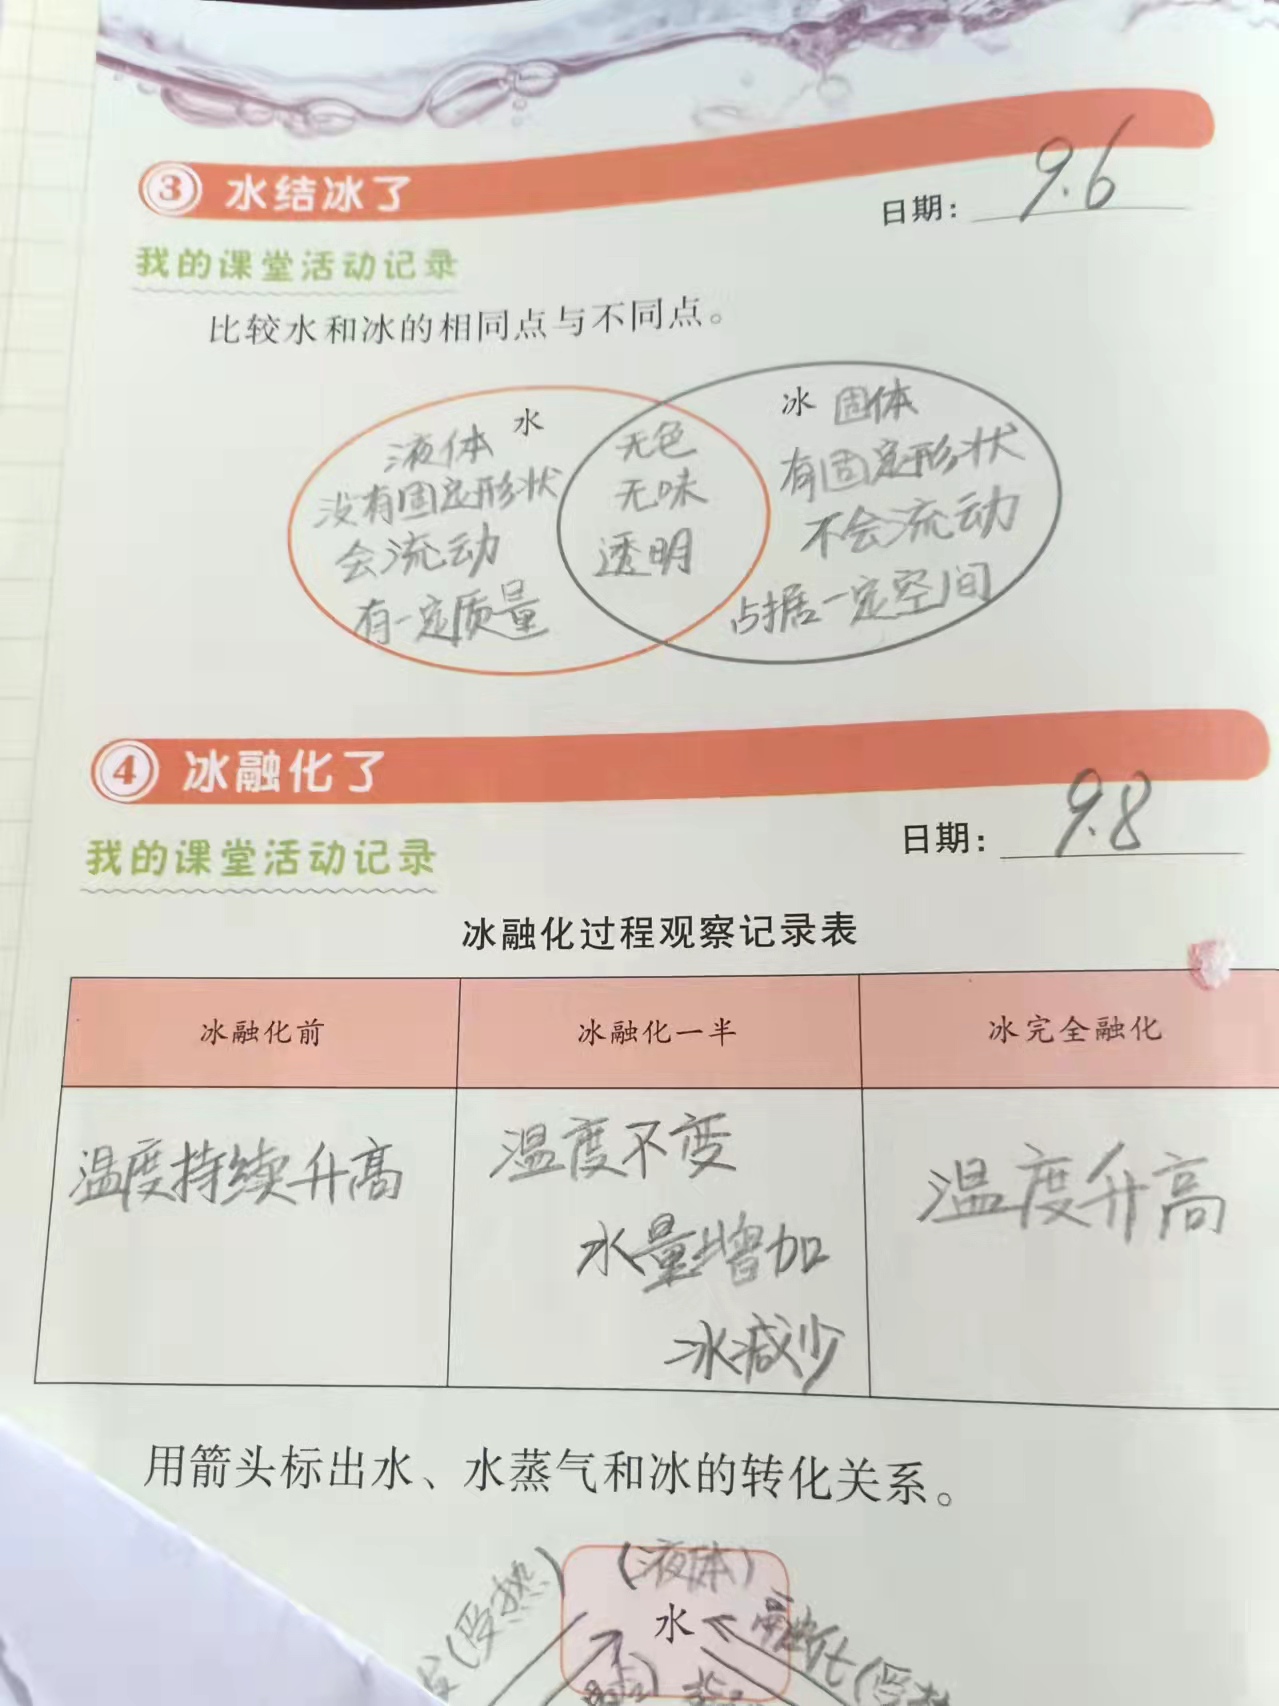 3 水结冰了
日期：9.6
我的课堂活动记录
比较水和冰的相同点与不同点。
水
液体
没有固定形状
会流动
有一定质量
无色
无味
透明
冰 固体
有固定形状
不会流动
占据一定空间
4 冰融化了
日期：9.8
我的课堂活动记录
冰融化过程观察记录表
冰融化前 冰融化一半 冰完全融化
温度持续升高
温度不变
水量增加
冰减少
温度升高
用箭头标出水、水蒸气和冰的转化关系。
(液体)
水
(受热)
融化(受热